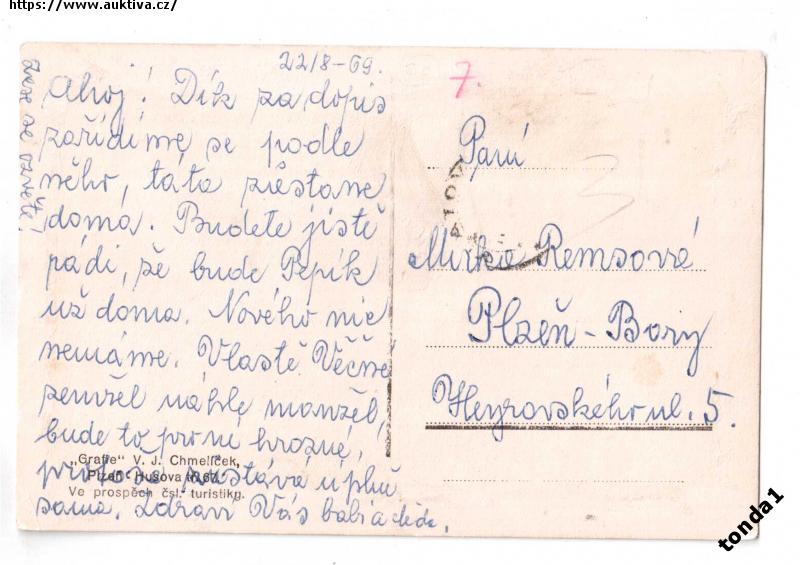 https://www.auktiva.cz/
22/8-69.
7.
Ahoj! Dík za dopis
zařídíme se podle
něho, táta zůstane
doma. Budete jistě
rádi, že bude Pepík
už doma. Nového nic
nemáme. Vlastě Věčné
zemřel náhle manžel,
bude to první hrozné,
protože zůstává úplně
sama. Zdraví Vás babi a děda.
Zase se ozvěte!
„Grafie" V. J. Chmelíček,
Plzeň Husova
Ve prospěch čsl. turistiky.
Paní
Mirka Remsová
Plzeň-Bory
Heyrovského ul. 5.
tonda1